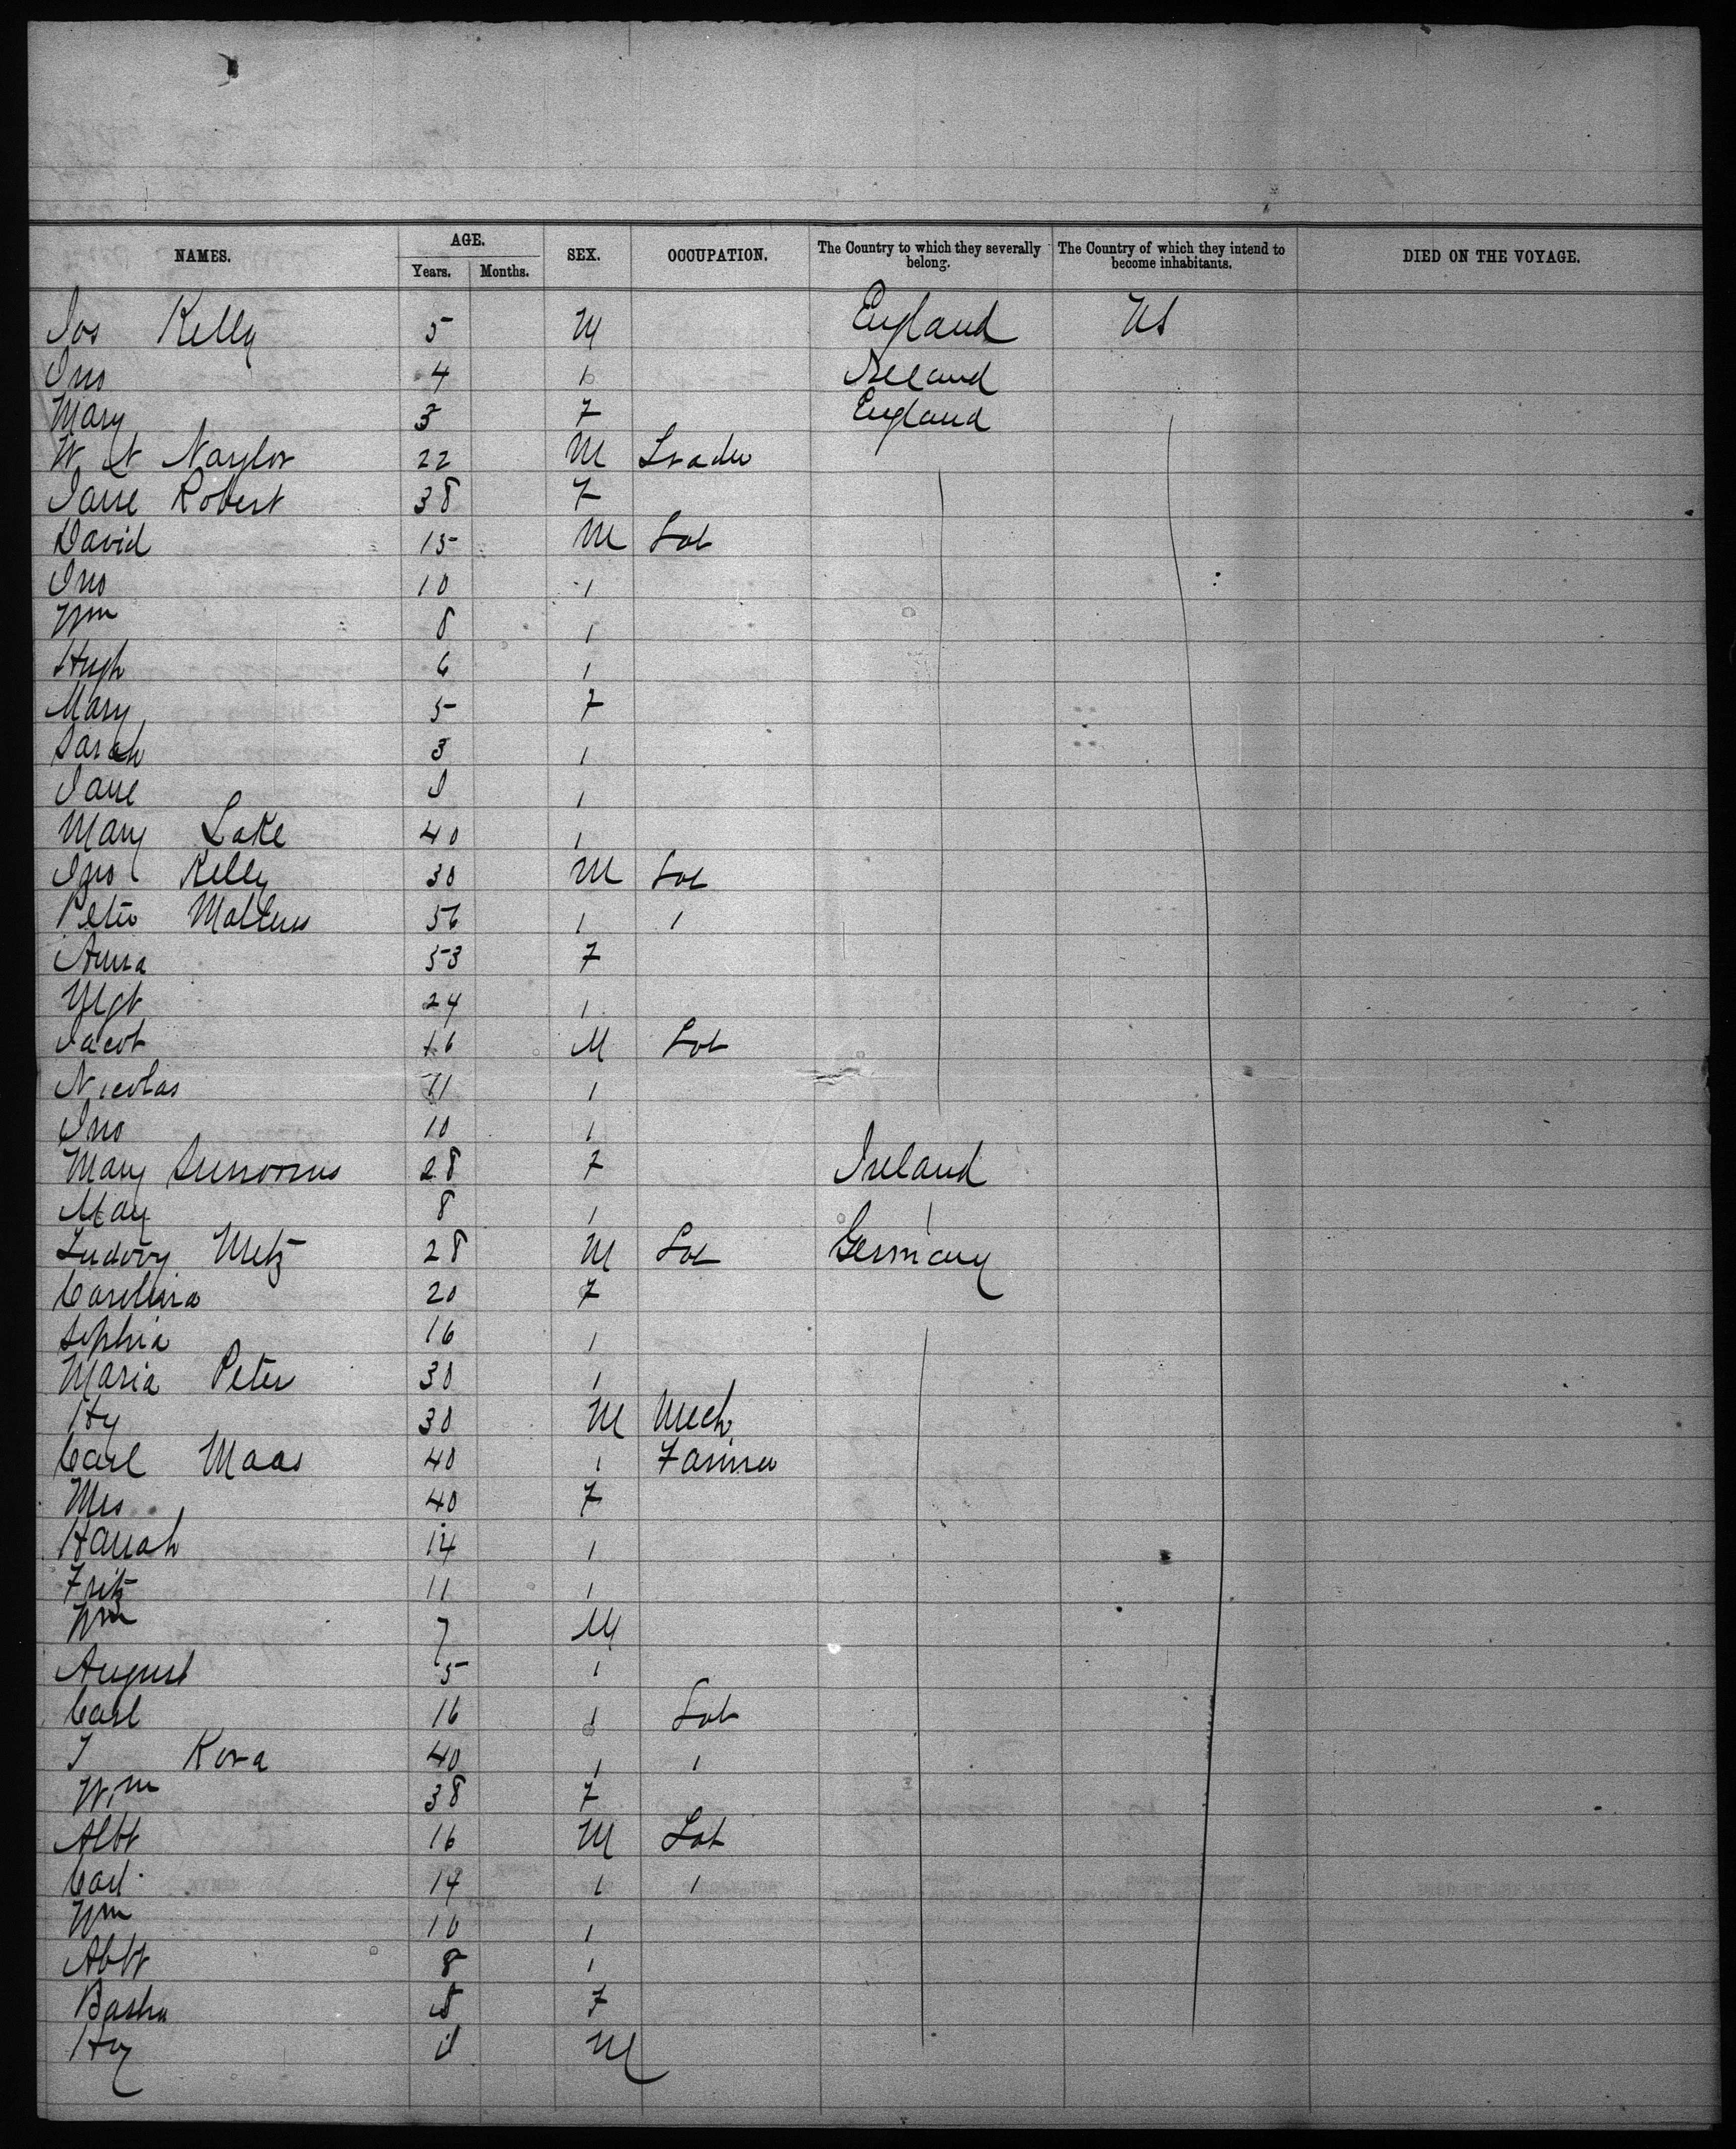 NAMES. AGE. SEX. OCCUPATION. The Country to which they severally belong. The Country of which they intend to become inhabitants. DIED ON THE VOYAGE.
Years. Months.
Jos Kelly 5 M England US
Jno 4 1 Ireland
Mary 3 F England
W Naylor 22 M
Jane Robert 38 F
David 15 M Lab
Jno 10 1
Wm 8 1
Hugh 6 1
Mary 5 F
Sarah 3 1
Jane 1
Mary Lake 40 1
Jno Kelly 30 M Lab
Peter 56 1 1
Anna 53 F
Mgt 24 1
Jacob 16 M Lab
Nicolas 11 1
Jno 10 1
Mary 28 F Ireland
May 8 1 1
Ludovy Metz 28 M Lab Germany
Carolina 20 F
Sophia 16 1
Maria Peter 30 1
Hy 30 M Mech
Carl Maas 40 1 Farmer
Mrs 40 F
Hanah 14 1
Fritz 11 1
Wm 7 M
August 5 1
Carl 16 1 Lab
Kova 40 1 1
Wm 38 F
Albt 16 M Lab
Carl 14 1 1
Wm 10 1
Albt 8 1
F
Hy M